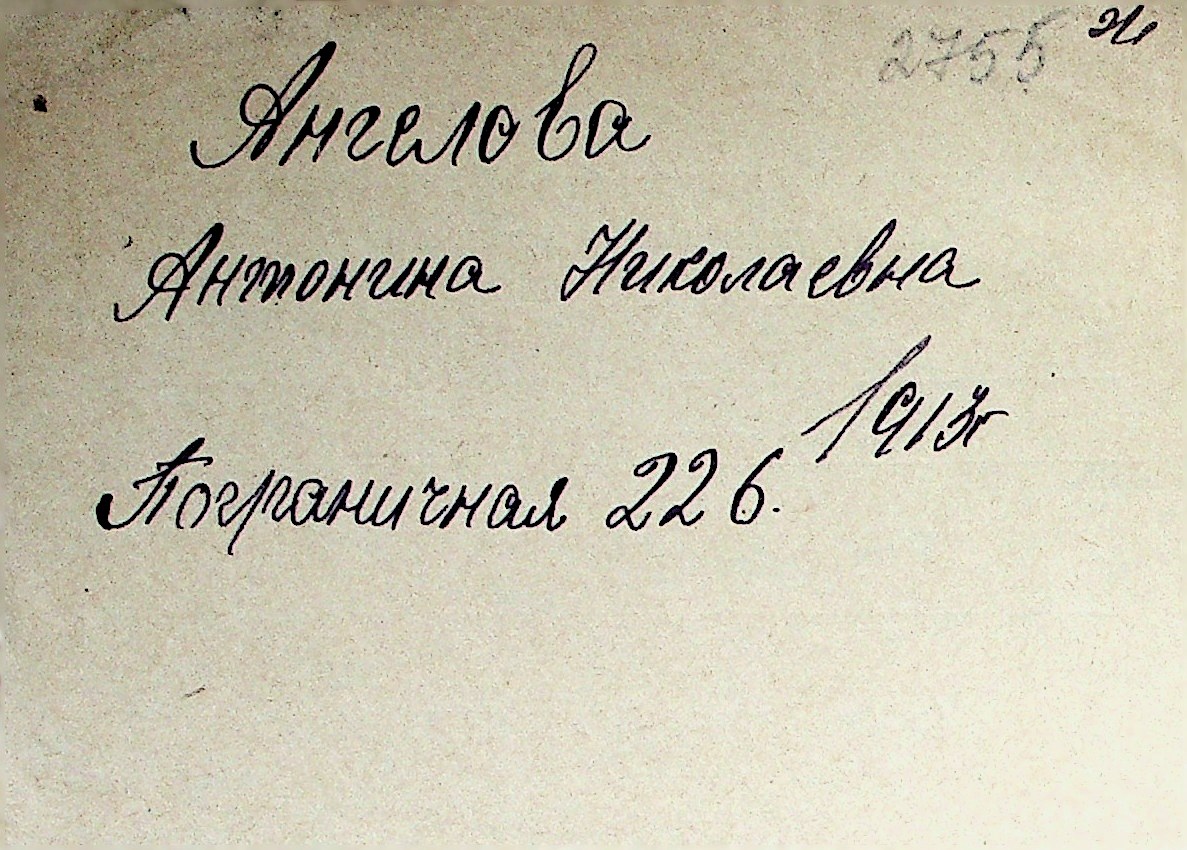 2755 ж
Ангелова
Антонина Николаевна
1913г
Пограничная 226.